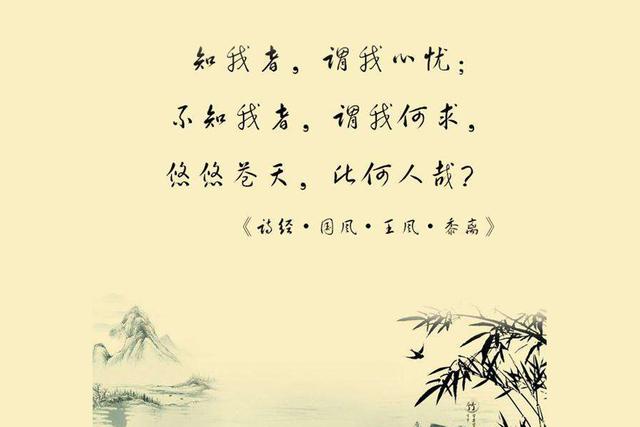 知我者，谓我心忧；
不知我者，谓我何求，
悠悠苍天，此何人哉？
《诗经·国风·王风·黍离》